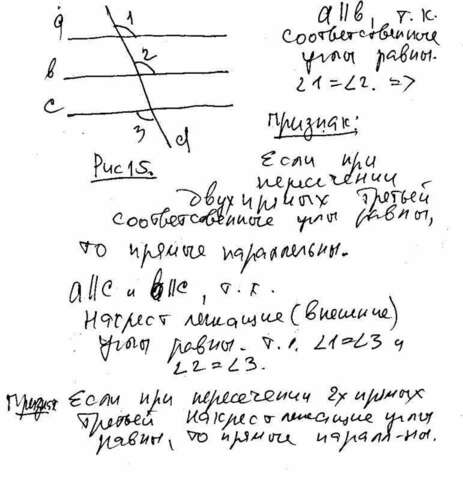 a
1
b
2
c
3
d
Рис 15.
a||b, т.к.
соответственные
углы равны.
∠1=∠2. =>
Признак:
Если при
пересечении
двух прямых третьей
соответственные углы равны,
то прямые параллельны.
a||c и b||c, т.к.
накрест лежащие (внешние)
углы равны. т.е. ∠1=∠3 и
∠2=∠3.
Признак Если при пересечении 2х прямых
третьей накрест лежащие углы
равны, то прямые паралл-ны.